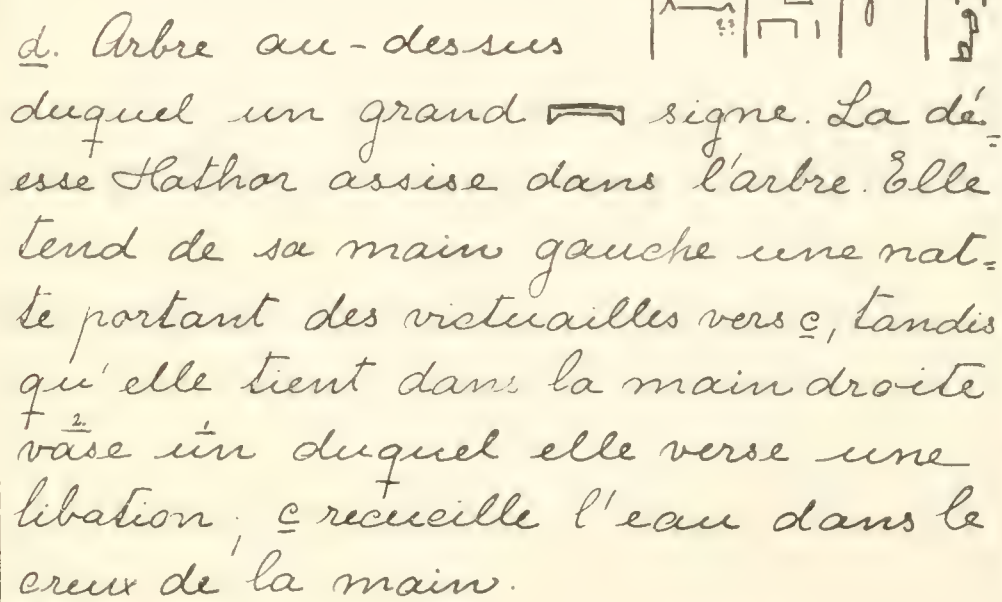 d. Arbre au-dessus
duquel un grand 𓇯 signe. La dé=
esse Hathor assise dans l'arbre. Elle
tend de sa main gauche une nat=
te portant des victuailles vers c, tandis
qu'elle tient dans la main droite
vase 2. un 1. duquel elle verse une
libation; c recueille l'eau dans le
creux de la main.